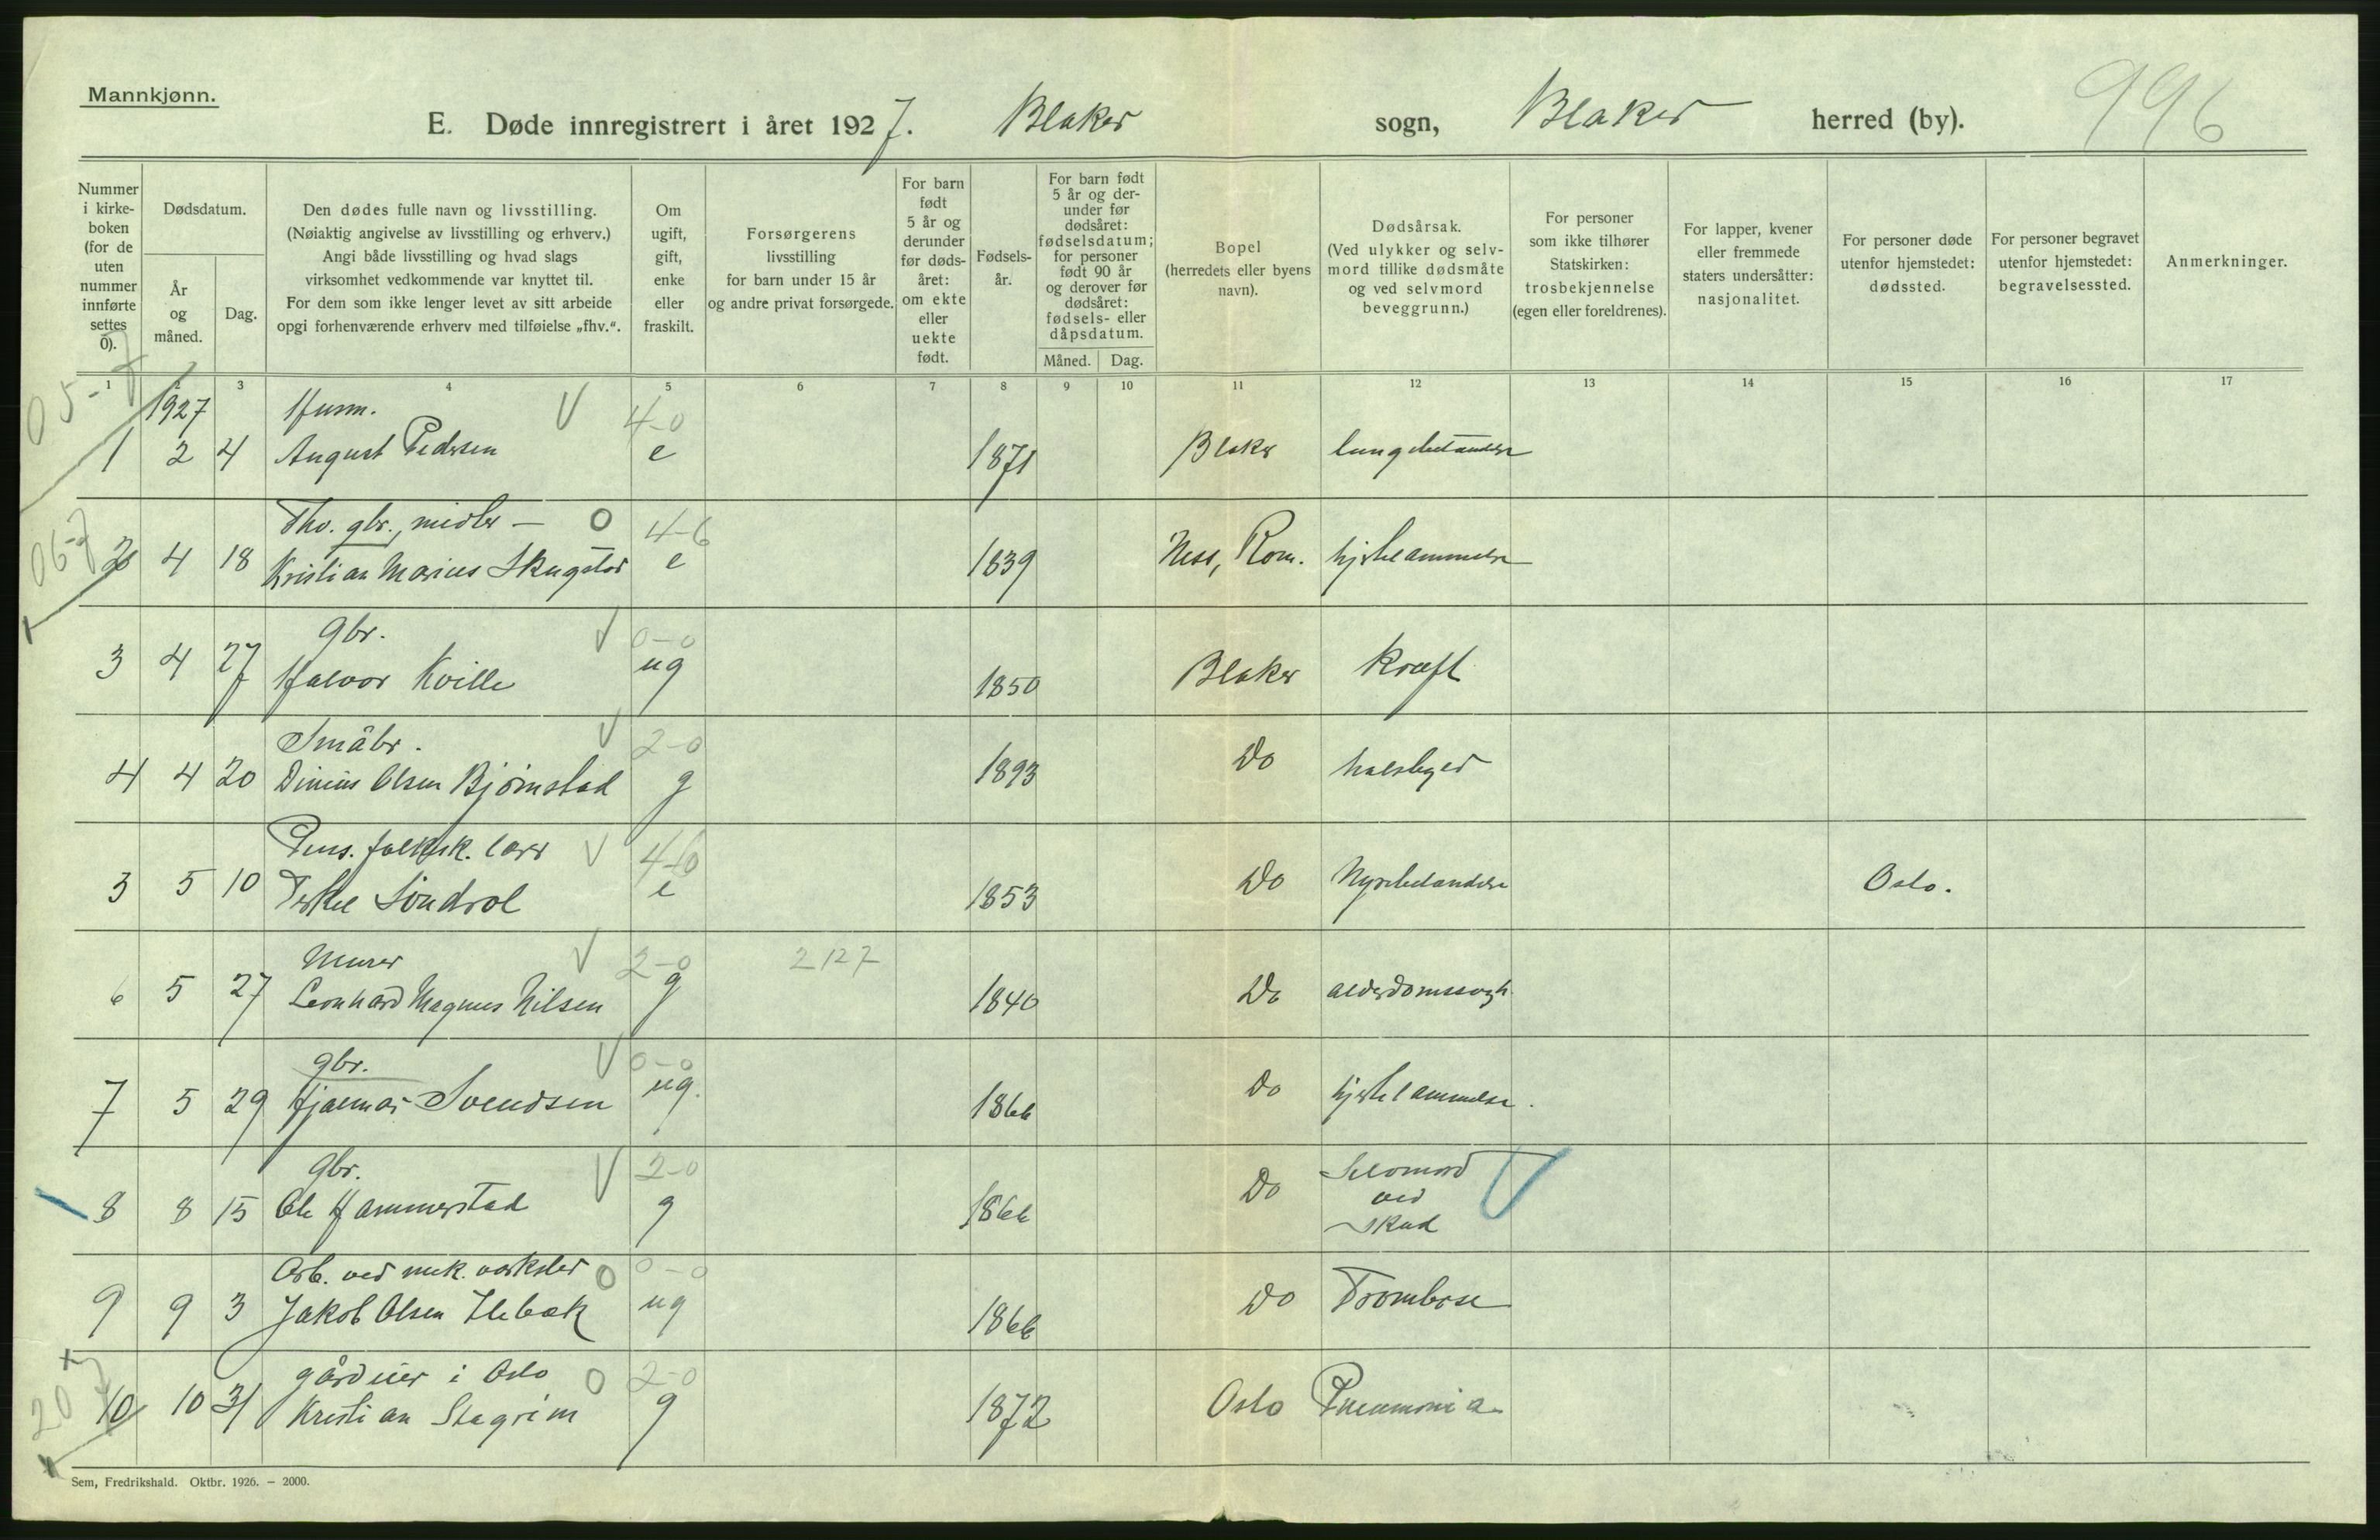 Mannkjønn.
E. Døde innregistrert i året 1927. Blaker sogn, Blaker herred (by). 996
Nummer i kirkeboken (for de uten nummer innførte settes 0).
Dødsdatum.
År og måned.
Dag.
Den dødes fulle navn og livsstilling.
(Nøiaktig angivelse av livsstilling og erhverv.)
Angi både livsstilling og hvad slags
virksomhet vedkommende var knyttet til.
For dem som ikke lenger levet av sitt arbeide
opgi forhenværende erhverv med tilføielse „fhv.“.
Om ugift, gift, enke eller fraskilt.
Forsørgerens
livsstilling
for barn under 15 år
og andre privat forsørgede.
For barn født 5 år og derunder før dødsåret: om ekte eller uekte født.
Fødselsår.
For barn født 5 år og derunder før dødsåret: fødselsdatum; for personer født 90 år og derover før dødsåret: fødsels- eller dåpsdatum.
Måned. Dag.
Bopel
(herredets eller byens
navn).
Dødsårsak.
(Ved ulykker og selv-
mord tillike dødsmåte
og ved selvmord
beveggrunn.)
For personer
som ikke tilhører
Statskirken:
trosbekjennelse
(egen eller foreldrenes).
For lapper, kvener
eller fremmede
staters undersåtter:
nasjonalitet.
For personer døde
utenfor hjemstedet:
dødssted.
For personer begravet
utenfor hjemstedet:
begravelsessted.
Anmerkninger.
1 2 3 4 5 6 7 8 9 10 11 12 13 14 15 16 17
05-7 1927 Husm. 4-0
1 2 4 August Pedersen e 1871 Blaker lungebetændelse
06-7 Fhv. gbr., midler - 0 4-6
2 4 18 Kristian Marius Skugstad e 1839 Ness, Rom. hjertelammelse
gbr. 0-0
3 4 27 Halvor Kville ug 1850 Blaker Kræft
Småbr. 2-0
4 4 20 Olsen Bjørnstad g 1893 Do
Pens. folkesk. lærer 4-0
3 5 10 Terkel Søndrol e 1853 Do Nyrebetændelse Oslo.
Murer 2-0 2127
6 5 27 Leonhard Magnus Nilsen g 1840 Do alderdomssvagh.
gbr. 0-0
7 5 29 Hjalmar Svendsen ug. 1866 Do hjertelammelse.
gbr. 2-0
8 8 15 Ole Hammerstad g 1866 Do Selvmord
ved
skud
Arb. ved mek. verksted 0 0-0
9 9 3 Jakob Olsen Ilebæk ug 1866 Do Trombose
20 gårdeier i Oslo 0 2-0
10 10 31 Kristian Stagrim g 1872 Oslo Pneumonia
Sem, Fredrikshald. Oktbr. 1926. – 2000.